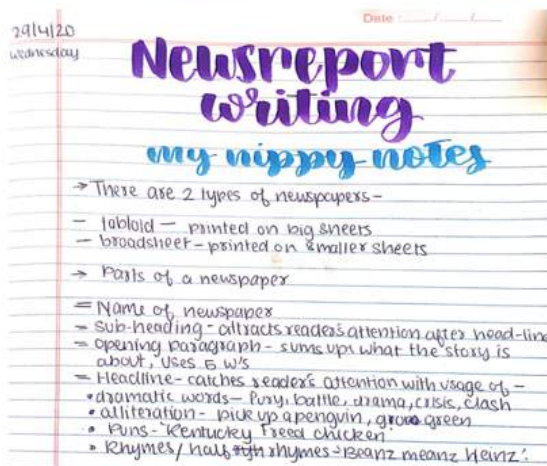 Date :
29/4/20
Wednesday
Newsreport
writing
my nippy notes
→ There are 2 types of newspapers-
- tabloid - printed on big sheets
- broadsheet - printed on smaller sheets
→ Parts of a newspaper
= Name of newspaper
- Sub-heading - attracts reader's attention after head-line
= opening paragraph - sums ups what the story is
about, uses 5 W's
= Headline - catches reader's attention with usage of -
• dramatic words - fury, battle, drama, crisis, clash
• alliteration - pick up a penguin, green
• Puns - 'Kentucky freed chicken'
• Rhymes / half rhymes - 'Beanz meanz Heinz'.